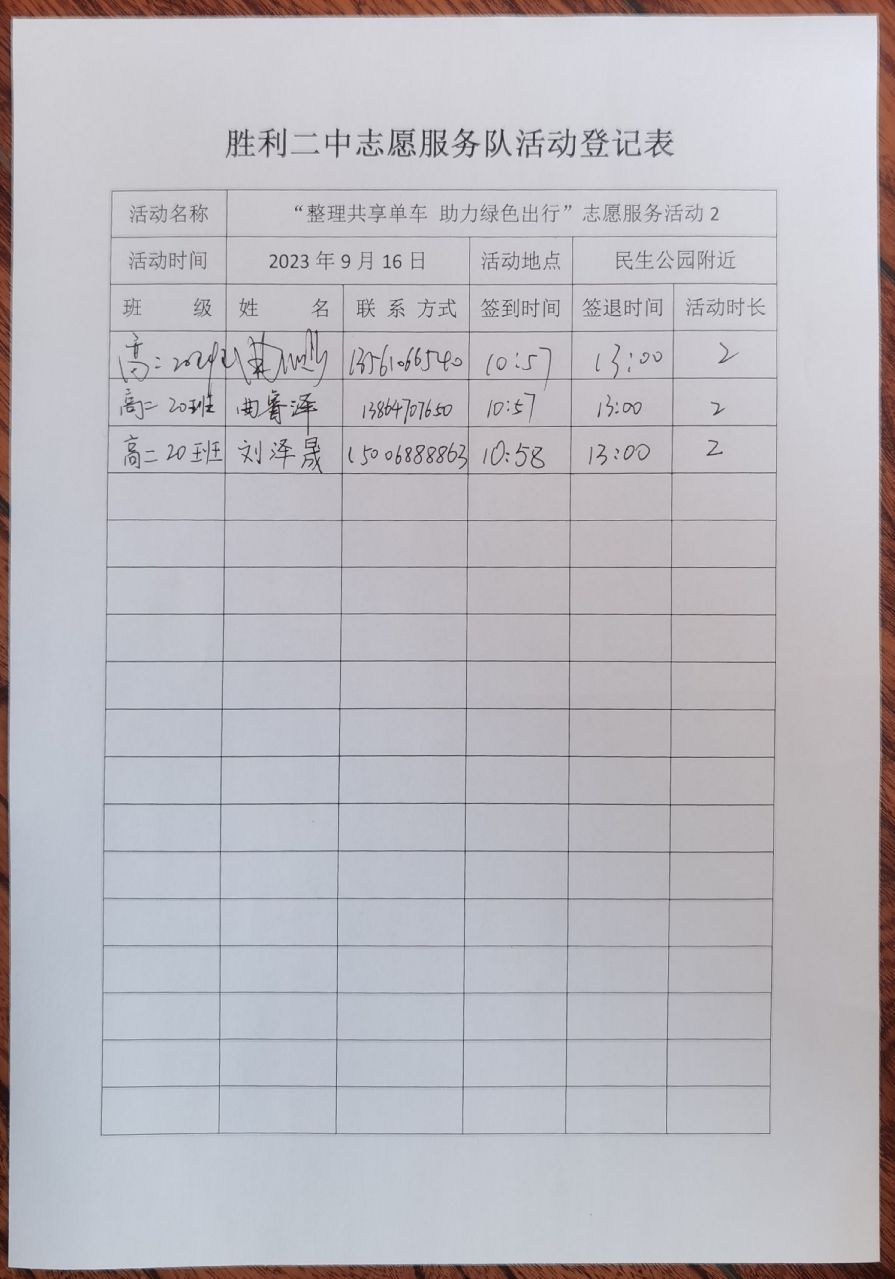 胜利二中志愿服务队活动登记表
活动名称 “整理共享单车 助力绿色出行”志愿服务活动2
活动时间 2023年9月16日 活动地点 民生公园附近
班 级 姓 名 联 系 方式 签到时间 签退时间 活动时长
高二20班 13561066540 10:57 13:00 2
高二20班 曲睿泽 13864707650 10:57 13:00 2
高二20班 刘泽晟 15006888863 10:58 13:00 2